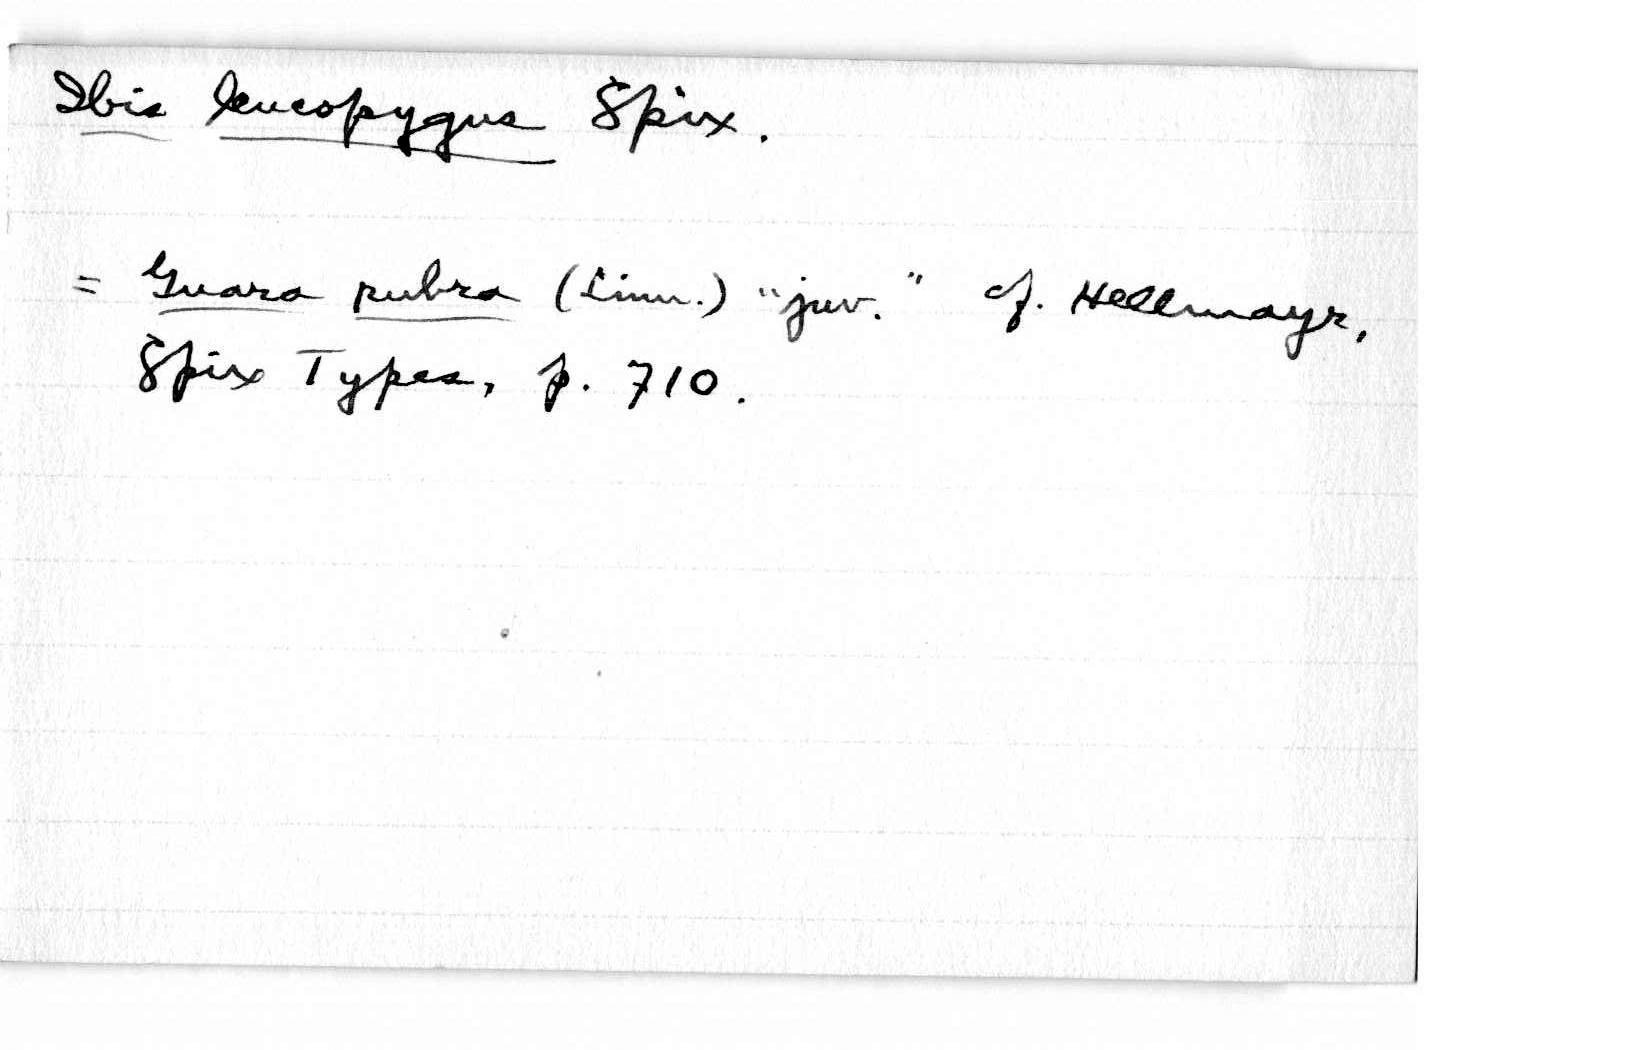 Ibis leucopygus Spix.
= Guara rubra (Linn.) "juv." cf. Hellmayr,
Spix Types, p. 710.